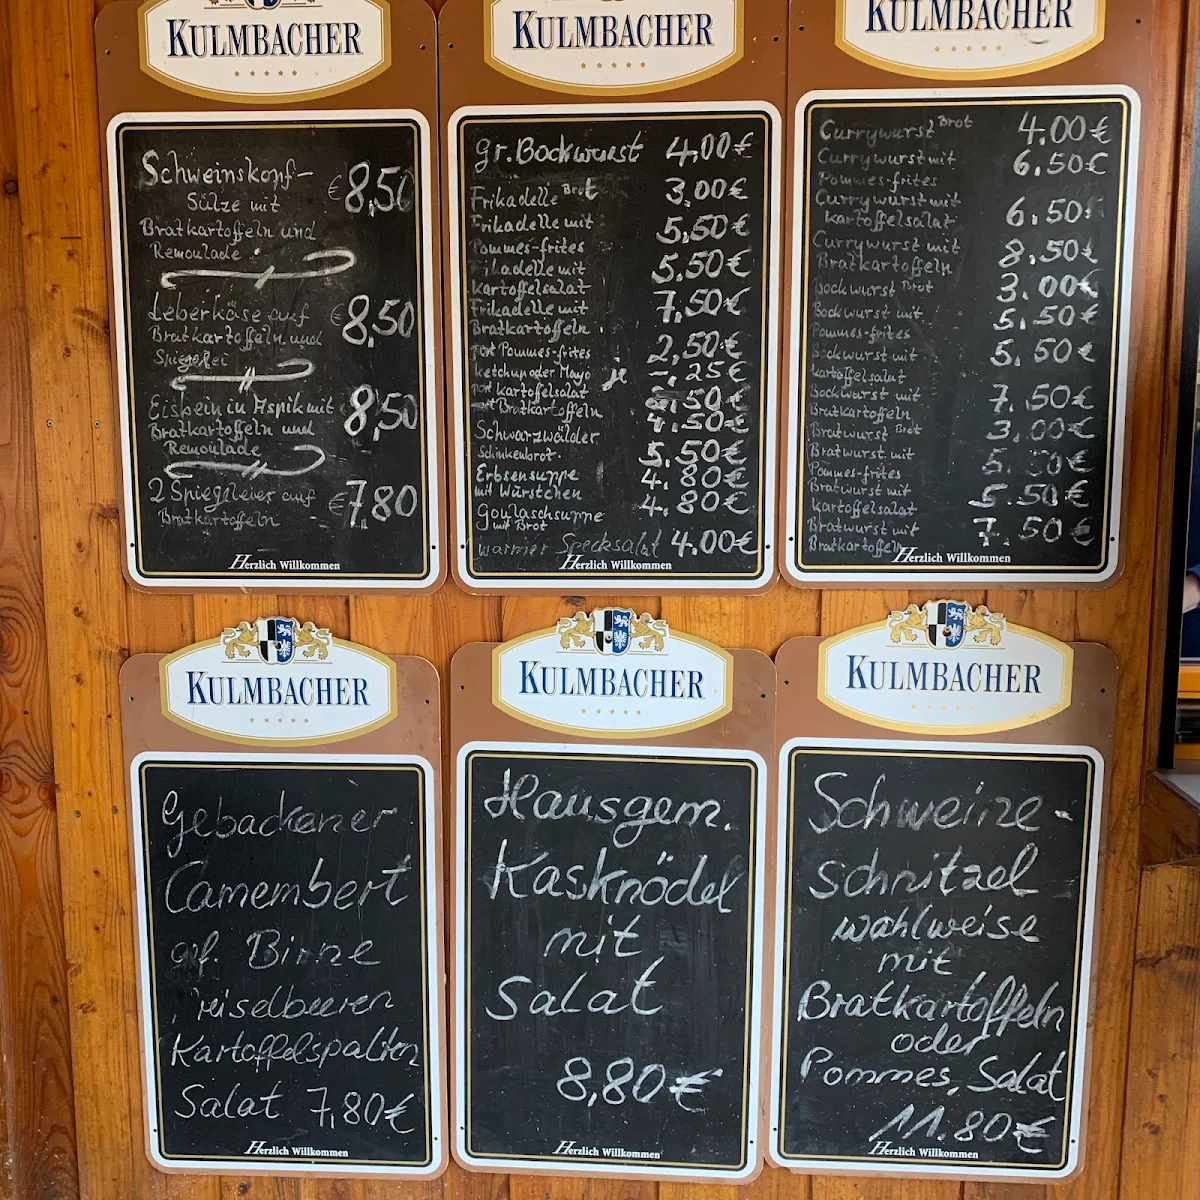 KULMBACHER
Schweinskopf- €8,50
Sülze mit
Bratkartoffeln und
Remoulade
Leberkäse auf €8,50
Bratkartoffeln und
Spiegelei
Eisbein in Aspik mit 8,50
Bratkartoffeln und
Remoulade
2 Spiegeleier auf €7,80
Bratkartoffeln
Herzlich Willkommen
KULMBACHER
gr. Bockwurst 4.00€
Frikadelle Brot 3.00€
Frikadelle mit 5,50€
Pommes-frites
Frikadelle mit 5.50€
Kartoffelsalat
Frikadelle mit 7,50€
Bratkartoffeln
port Pommes-frites 2,50€
Ketchup oder Mayo je -,25€
port Kartoffelsalat .50€
Bratkartoffeln 4.50€
Schwarzwälder
Schinkenbrot. 5.50€
Erbsensuppe 4.80€
mit Würstchen
Goulaschsuppe 4.80€
mit Brot
warmer Specksalat 4.00€
Herzlich Willkommen
KULMBACHER
Currywurst Brot 4.00€
Currywurst mit 6.50€
Pommes-frites
Currywurst mit 6.50€
Kartoffelsalat
Currywurst mit 8,50€
Bratkartoffeln
Bockwurst Brot 3.00€
Bockwurst mit 5.50€
Pommes-frites
Bockwurst mit 5.50€
Kartoffelsalat
Bockwurst mit 7.50€
Bratkartoffeln
Bratwurst Brot 3.00€
Bratwurst mit 5.50€
Pommes-frites
Bratwurst mit 5.50€
Kartoffelsalat
Bratwurst mit 7.50€
Bratkartoffeln
Herzlich Willkommen
KULMBACHER
Gebackener
Camembert
gef. Birne
Preiselbeeren
Kartoffelspalten
Salat 7,80€
Herzlich Willkommen
KULMBACHER
Hausgem.
Kasknödel
mit
Salat
8,80€
Herzlich Willkommen
KULMBACHER
Schweine-
schnitzel
wahlweise
mit
Bratkartoffeln
oder
Pommes, Salat
11.80€
Herzlich Willkommen